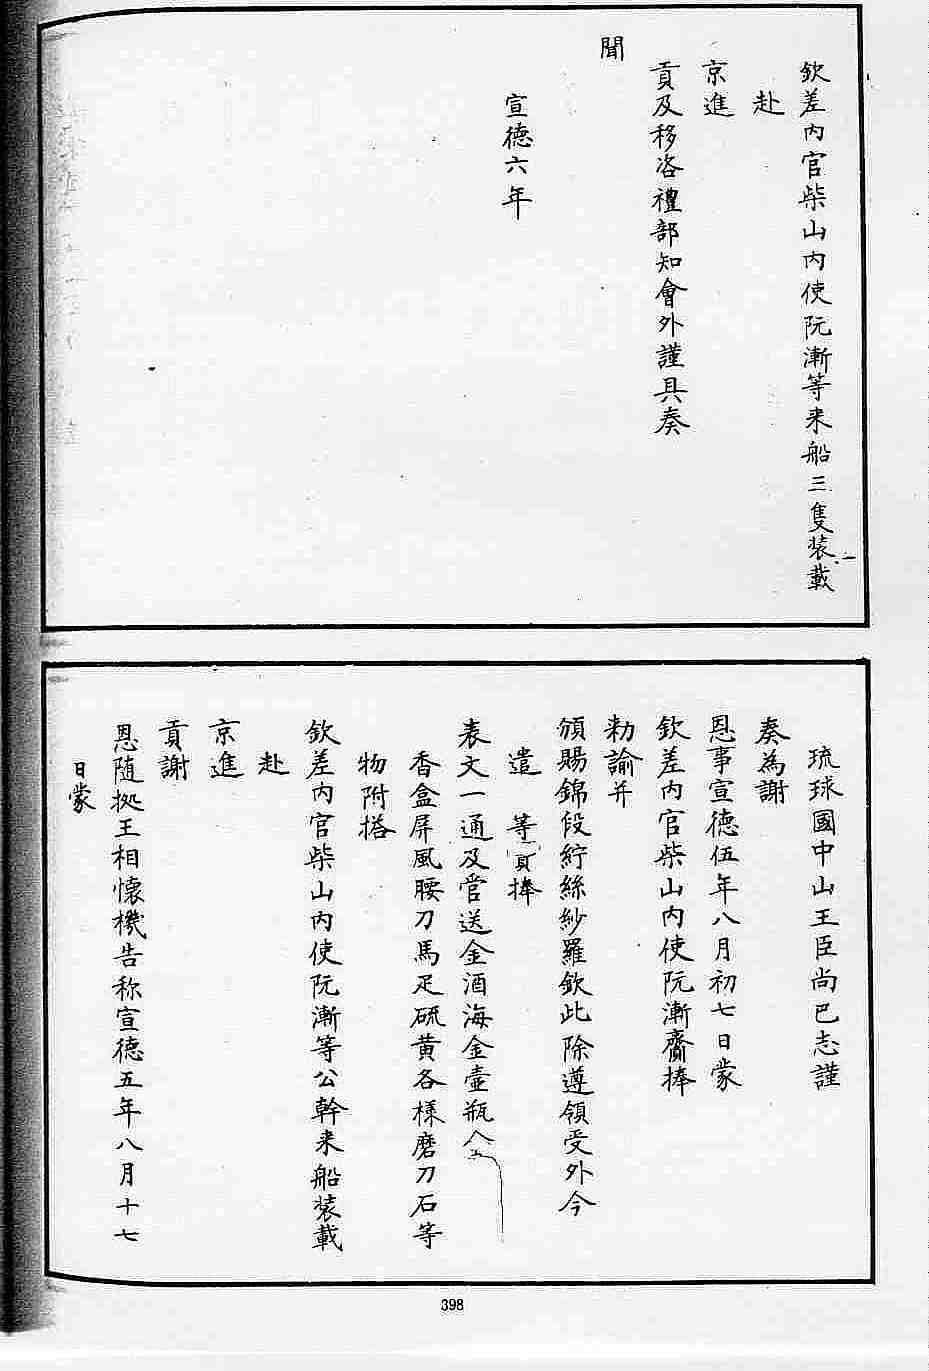 欽差内官柴山内使阮漸等来船三隻装載
赴
京進
貢及移咨禮部知會外謹具奏
聞
宣德六年
琉球國中山王臣尚巴志謹
奏為謝
恩事宣德伍年八月初七日蒙
欽差内官柴山内使阮漸齎捧
勑諭并
頒賜錦段紵絲紗羅欽此除遵領受外今
遣 等賫捧
表文一通及管送金酒海金壺瓶
香盒屏風腰刀馬疋硫黄各様磨刀石等
物附搭
欽差内官柴山内使阮漸等公幹来船装載
赴
京進
貢謝
恩随拠王相懷機告称宣德五年八月十七
日蒙
398